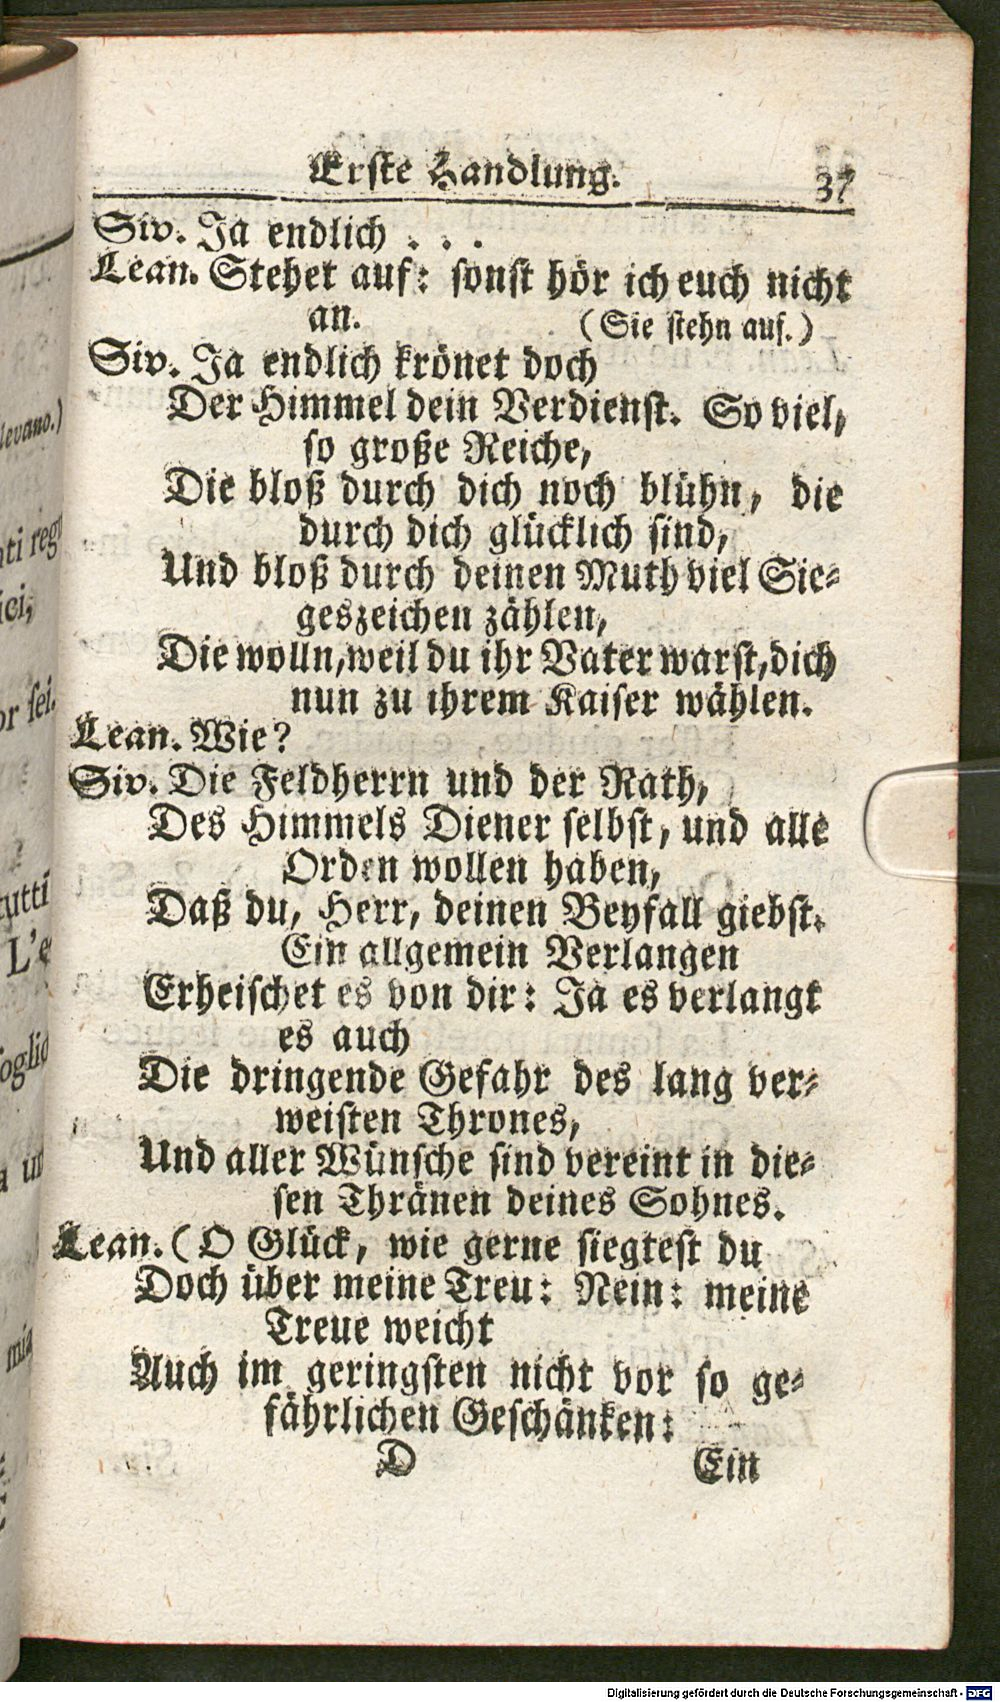 Erste Handlung.
37
Siv. Ja endlich . . .
Lean. Stehet auf: sonst hör ich euch nicht
an. (Sie stehn auf.)
Siv. Ja endlich krönet doch
Der Himmel dein Verdienst. So viel,
so große Reiche,
Die bloß durch dich noch blühn, die
durch dich glücklich sind,
Und bloß durch deinen Muth viel Sie-
geszeichen zählen,
Die wolln, weil du ihr Vater warst, dich
nun zu ihrem Kaiser wählen.
Lean. Wie?
Siv. Die Feldherrn und der Rath,
Des Himmels Diener selbst, und alle
Orden wollen haben,
Daß du, Herr, deinen Beyfall giebst.
Ein allgemein Verlangen
Erheischet es von dir: Ja es verlangt
es auch
Die dringende Gefahr des lang ver-
weisten Thrones,
Und aller Wünsche sind vereint in die-
sen Thränen deines Sohnes.
Lean. (O Glück, wie gerne siegtest du
Doch über meine Treu: Nein: meine
Treue weicht
Auch im geringsten nicht vor so ge-
fährlichen Geschänken:
D Ein
levano.)
ici,
or sei.
tutti
L'e
mia
Digitalisierung gefördert durch die Deutsche Forschungsgemeinschaft - DFG